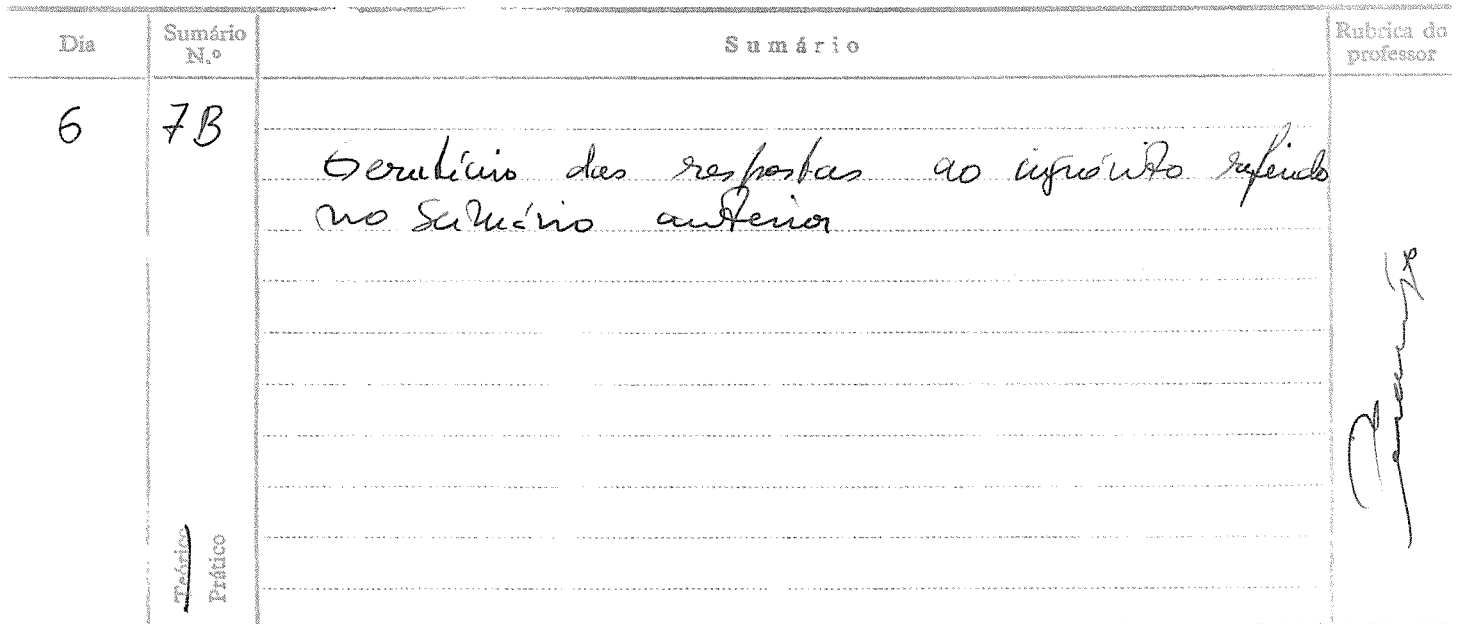 Dia
Sumário
N.º
Sumário
Rubrica do
professor
6
7B
Escrutínio das respostas ao inquérito referido
no Sumário anterior
Teórico
Prático